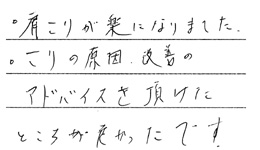 。肩こりが楽になりました.
。こりの原因.改善の
アドバイスを頂けた
ところが良かったです!